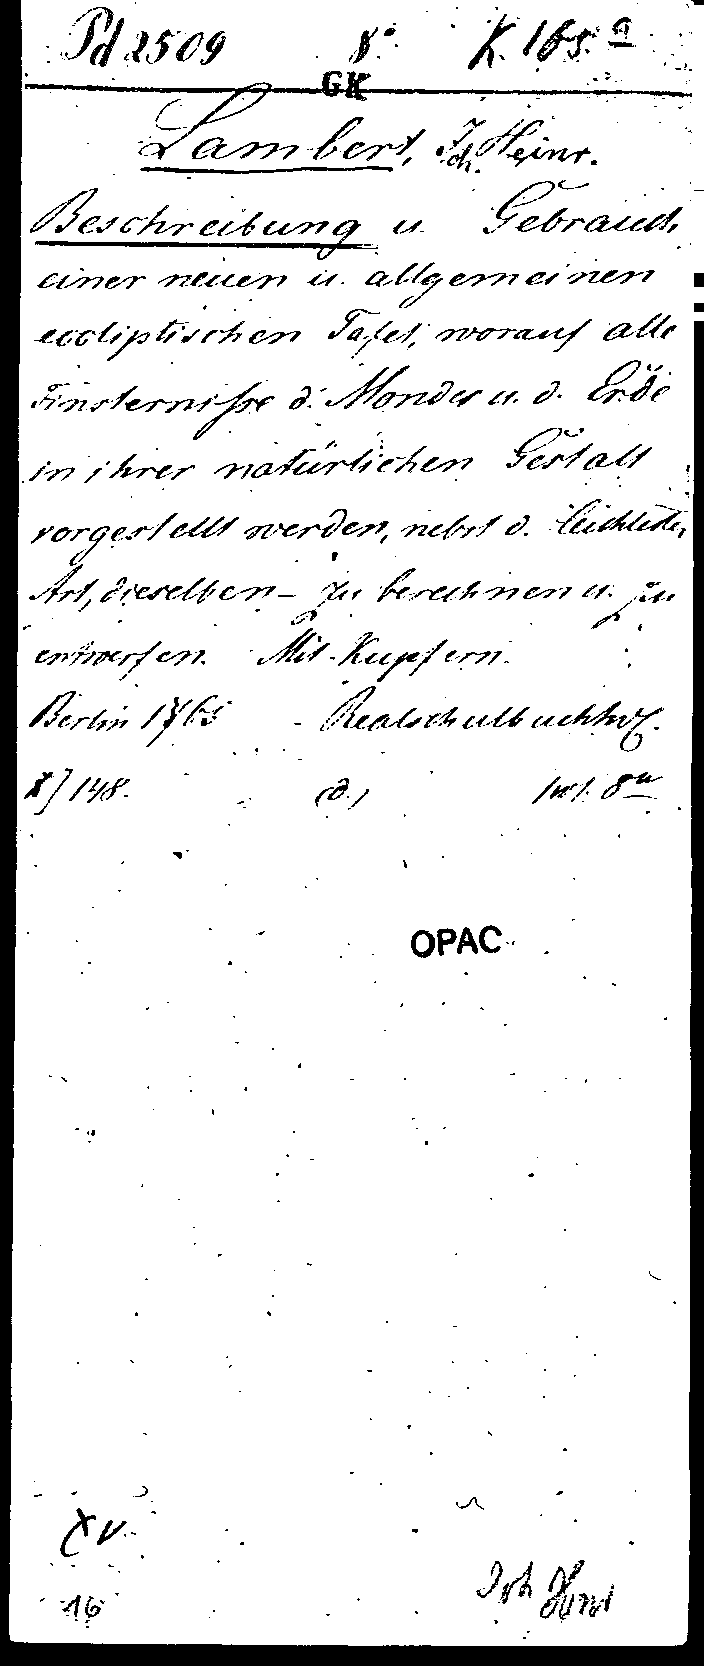 Pd 2509 8° K. 165.a
GK
Lambert, Joh. Heinr.
Beschreibung u. Gebrauch
einer neuen u. allgemeinen
eccliptischen Tafel, worauf alle
Finsternisse d. Mondes u. d. Erde
in ihrer natürlichen Gestalt
vorgestellt werden, nebst d. leichtesten
Art, dieselben – zu berechnen u. zu
entwerfen. Mit Kupfern.
Berlin 1765 - Realschulbuchhdl.
X] 148. (d.)
OPAC
XV
16
Joh Henr